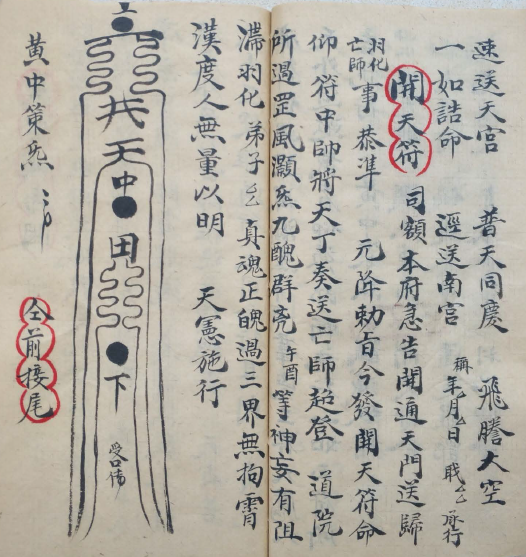 速送天宫　普天同慶　飛騰太空
一如誥命　逕送南宫　稱年月日職厶承行
開天符　司額本府急告開通天門送歸
羽化亡師事恭準　元降勅旨今發開天符命
仰符中帥將天丁奏送亡師超登　道院
所過罡風灝炁九醜群竞午酉等神妄有阻
滯羽化弟子厶厶真魂正魄過三界無拘霄
漢度人無量以明　天憲施行
天
中
田
下
黄中策炁
仝前接尾